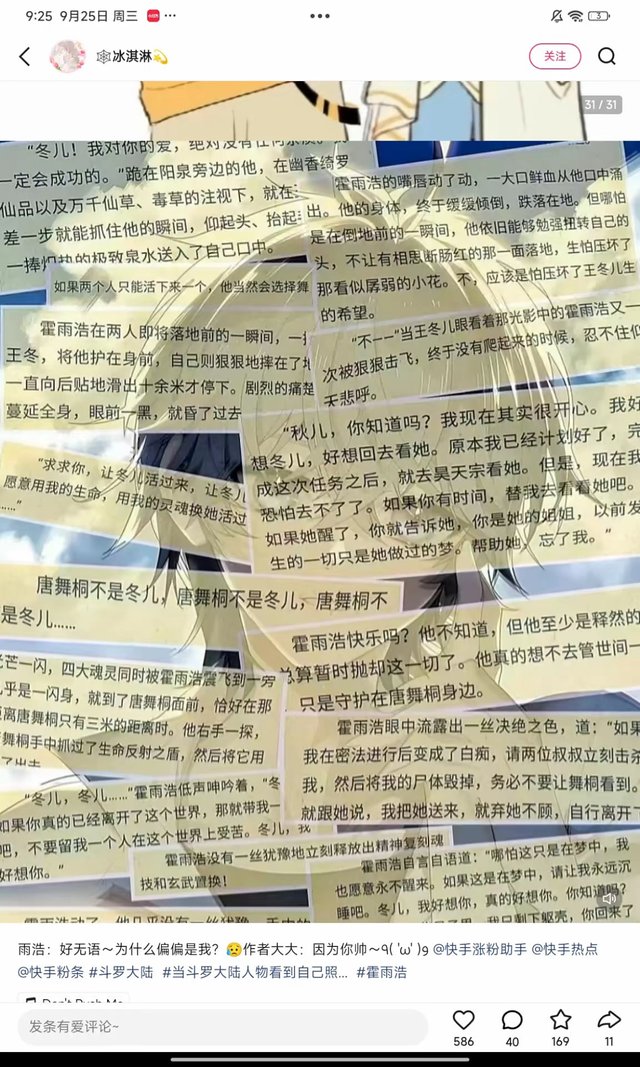 9:25 9月25日 周三
3
🕸冰淇淋💫
关注
31 / 31
“冬儿！我对你的爱，绝对没有任何
一定会成功的。”跪在阳泉旁边的他，在幽香绮罗
仙品以及万千仙草、毒草的注视下，就在
差一步就能抓住他的瞬间，仰起头、抬起
一捧炽热的极致泉水送入了自己口中。
如果两个人只能活下来一个，他当然会选择舞
霍雨浩在两人即将落地前的一瞬间，一
王冬，将他护在身前，自己则狠狠地摔在了地
一直向后贴地滑出十余米才停下。剧烈的痛楚
蔓延全身，眼前一黑，就昏了过去
“求求你，让冬儿活过来，让冬儿
愿意用我的生命，用我的灵魂换她活过
……”
唐舞桐不是冬儿，唐舞桐不是冬儿，唐舞桐不
是冬儿……
光芒一闪，四大魂灵同时被霍雨浩震飞到一旁
几乎是一闪身，就到了唐舞桐面前，恰好在那
距离唐舞桐只有三米的距离时。他右手一探，
舞桐手中抓过了生命反射之盾，然后将它用
了出去
“冬儿，冬儿……”霍雨浩低声呻吟着，“冬
如果你真的已经离开了这个世界，那就带我一
吧，不要留我一个人在这个世界上受苦。冬儿，我
好想你。”
霍雨浩的嘴唇动了动，一大口鲜血从他口中涌
出。他的身体，终于缓缓倾倒，跌落在地。但哪怕
是在倒地前的一瞬间，他依旧能够勉强扭转自己的
头，不让有相思断肠红的那一面落地，生怕压坏了
那看似孱弱的小花。不，应该是怕压坏了王冬儿生
的希望。
“不——”当王冬儿眼看着那光影中的霍雨浩又一
次被狠狠击飞，终于没有爬起来的时候，忍不住仰
天悲呼。
“秋儿，你知道吗？我现在其实很开心。我好
想冬儿，好想回去看她。原本我已经计划好了，完
成这次任务之后，就去昊天宗看她。但是，现在我
恐怕去不了了。如果你有时间，替我去看看她吧。
如果她醒了，你就告诉她，你是她的姐姐，以前发
生的一切只是她做过的梦。帮助她，忘了我。”
霍雨浩快乐吗？他不知道，但他至少是释然的
总算暂时抛却这一切了。他真的想不去管世间一
只是守护在唐舞桐身边。
霍雨浩眼中流露出一丝决绝之色，道：“如果
我在密法进行后变成了白痴，请两位叔叔立刻击杀
我，然后将我的尸体毁掉，务必不要让舞桐看到。
就跟她说，我把她送来，就弃她不顾，自行离开了
霍雨浩没有一丝犹豫地立刻释放出精神复刻魂
技和玄武置换！
霍雨浩自言自语道：“哪怕这只是在梦中，我
也愿意永不醒来。如果这是在梦中，请让我永远沉
睡吧。冬儿，我好想你，真的好想你。你知道吗？
我只剩下躯壳，你回来了
雨浩：好无语～为什么偏偏是我？😥作者大大：因为你帅～٩( 'ω' )و @快手涨粉助手 @快手热点
@快手粉条 #斗罗大陆 #当斗罗大陆人物看到自己照... #霍雨浩
Don't Push Me
发条有爱评论~
586
40
169
11